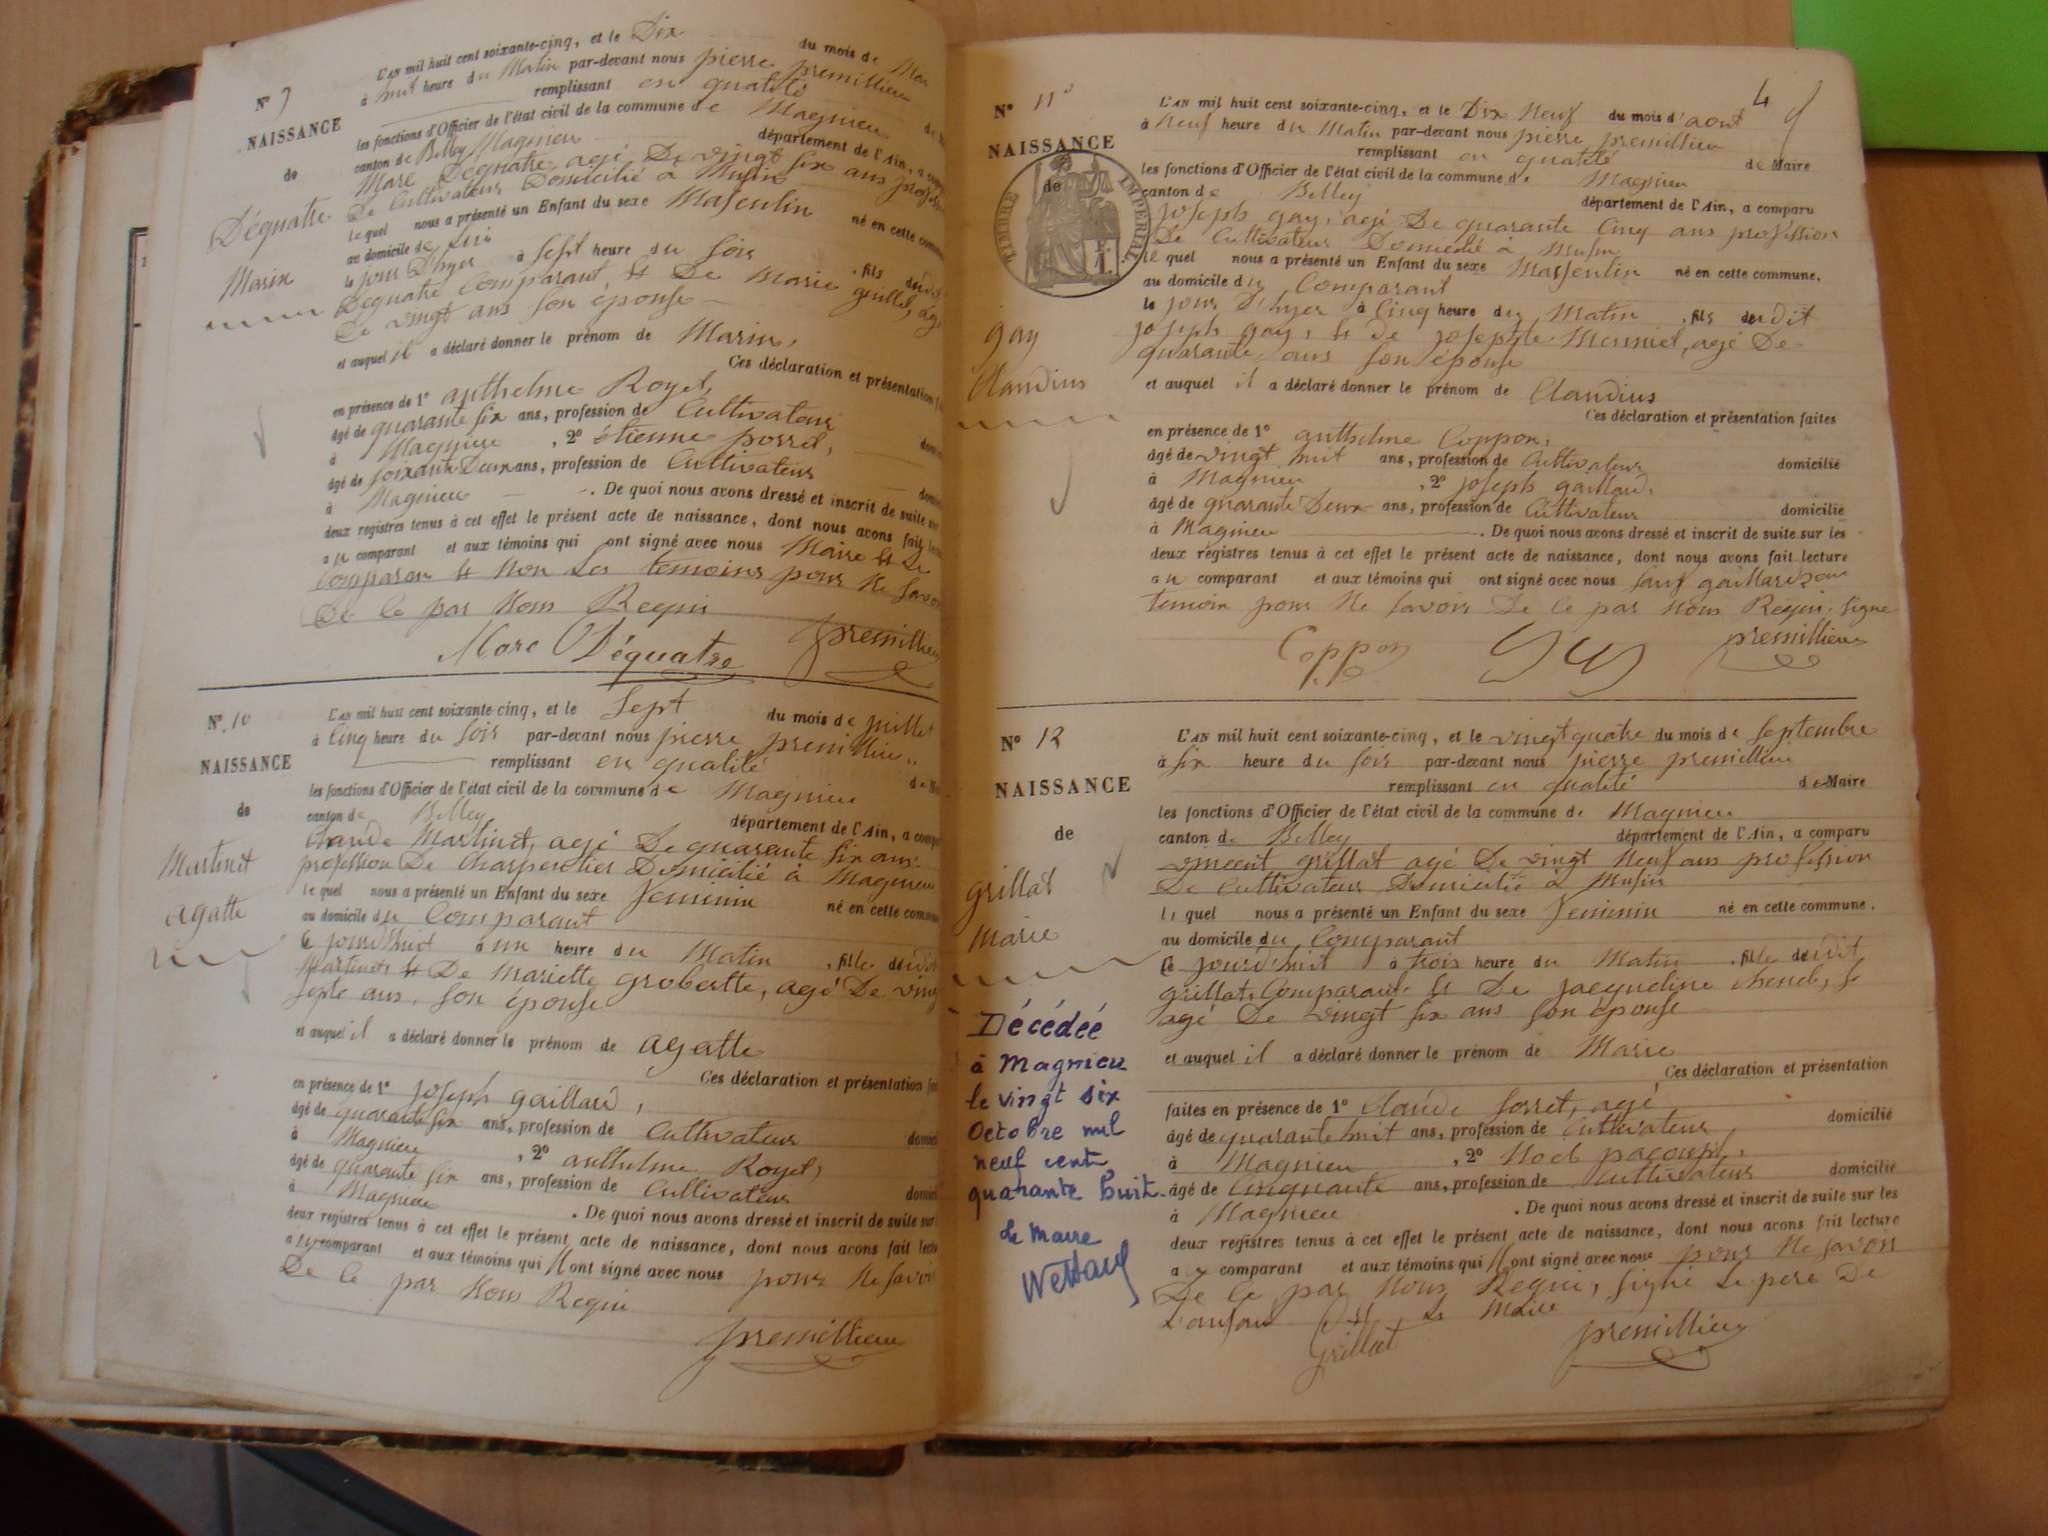 L'AN mil huit cent soixante-cinq, et le Dix du mois de Mai
à huit heure du Matin par-devant nous pierre premillieu
remplissant en qualité
N° 9
NAISSANCE
de
Déquatre
Marin
les fonctions d'Officier de l'état civil de la commune de Magnieu
canton de Belley Magnieu département de l'Ain, a comparu
Marc Dequatre, agé De vingt six ans profession
De Cultivateur Domicilié à Musin
lequel nous a présenté un Enfant du sexe Masculin né en cette commune
au domicile de lui
le jour D'hyer à Sept heure du Soir , fils dudit
Dequatre Comparant, & De Marie guillet, agé
De vingt ans son épouse
et auquel il a déclaré donner le prénom de Marin,
Ces déclaration et présentation
en présence de 1° anthelme Royet,
âgé de quarante six ans, profession de Cultivateur
à Magnieu , 2° étienne porret,
âgé de soixante Deux ans, profession de Cultivateur
à Magnieu . De quoi nous avons dressé et inscrit de suite sur
deux registres tenus à cet effet le présent acte de naissance, dont nous avons fait
au comparant et aux témoins qui ont signé avec nous Maire & Le
Comparan & Non Les temoins pour Ne savoir
De Ce par Nous Requi
Marc Déquatre premillieu
N° 10
NAISSANCE
de
Martinet
agatte
L'AN mil huit cent soixante-cinq, et le Sept du mois de juillet
à Cinq heure du Soir par-devant nous pierre premillieu
remplissant en qualité
les fonctions d'Officier de l'état civil de la commune de Magnieu
canton de Belley département de l'Ain, a comparu
Claude Martinet, agé De quarante six ans
profession De Charpentier Domicilié à Magnieu
lequel nous a présenté un Enfant du sexe feminin né en cette commune
au domicile du Comparant
le jourd'huit à un heure du Matin , fille dudit
Martinet & De Mariette grobertte, agé De vingt
septe ans, son épouse
et auquel il a déclaré donner le prénom de agatte
Ces déclaration et présentation
en présence de 1° joseph gaillard,
âgé de quarante six ans, profession de Cultivateur
à Magnieu , 2° anthelme Royet,
âgé de quarante six ans, profession de Cultivateur
à Magnieu . De quoi nous avons dressé et inscrit de suite sur
deux registres tenus à cet effet le présent acte de naissance, dont nous avons fait
au comparant et aux témoins qui ont signé avec nous pour Ne savoir
De Ce par Nous Requi
premillieu
4
N° 11
NAISSANCE
de
TIMBRE IMPERIAL
gay
Claudius
L'AN mil huit cent soixante-cinq, et le Dix Neuf du mois d'aout
à Neuf heure du Matin par-devant nous pierre premillieu
remplissant en qualité de Maire
les fonctions d'Officier de l'état civil de la commune de Magnieu
canton de Belley département de l'Ain, a comparu
joseph gay, agé De quarante Cinq ans profession
De Cultivateur Domicilié à Musin
lequel nous a présenté un Enfant du sexe Masculin né en cette commune.
au domicile du Comparant
le jour D'hyer à Cinq heure du Matin , fils dudit
joseph gay, & de josephte Meunier, agé De
quarante ans son épouse
et auquel il a déclaré donner le prénom de Claudius
Ces déclaration et présentation faites
en présence de 1° anthelme Coppon,
âgé de vingt huit ans, profession de Cultivateur domicilié
à Magnieu , 2° joseph gaillard,
âgé de quarante Deux ans, profession de Cultivateur domicilié
à Magnieu . De quoi nous avons dressé et inscrit de suite sur les
deux registres tenus à cet effet le présent acte de naissance, dont nous avons fait lecture
au comparant et aux témoins qui ont signé avec nous sauf gaillard
temoin pour Ne savoir De Ce par Nous Requi. signe
Coppon gay premillieu
N° 12
NAISSANCE
de
grillat
Marie
Décédée
à Magnieu
le vingt six
Octobre mil
neuf cent
quarante huit.
Le Maire
L'AN mil huit cent soixante-cinq, et le vingt quatre du mois de Septembre
à six heure du soir par-devant nous pierre premillieu
remplissant en qualité de Maire
les fonctions d'Officier de l'état civil de la commune de Magnieu
canton de Belley département de l'Ain, a comparu
vincent grillat agé De vingt Neuf ans profession
De Cultivateur Domicilié à Musin
lequel nous a présenté un Enfant du sexe feminin né en cette commune.
au domicile du Comparant
le jourd'huit à trois heure du Matin , fille dudit
grillat, Comparant & De jacqueline
agé De vingt six ans son épouse
et auquel il a déclaré donner le prénom de Marie
Ces déclaration et présentation
faites en présence de 1° Claude Porret, agé
âgé de quarante huit ans, profession de Cultivateur domicilié
à Magnieu , 2° Noel
âgé de Cinquante ans, profession de Cultivateur domicilié
à Magnieu . De quoi nous avons dressé et inscrit de suite sur les
deux registres tenus à cet effet le présent acte de naissance, dont nous avons fait lecture
au comparant et aux témoins qui ont signé avec nous pour Ne savoir
De Ce par Nous Requi, signe Le pere De
L'anfant & Le Maire
grillat premillieu